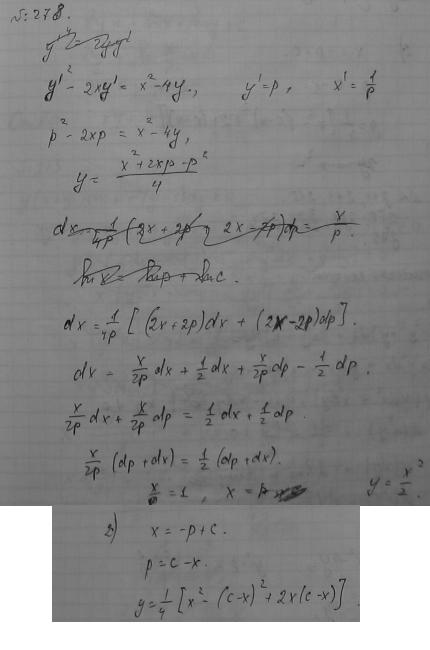 N: 278.
y'² - 2xy' = x² - 4y., y' = p, x' = 1/p
p² - 2xp = x² - 4y,
y = (x² + 2xp - p²)/4
dx = 1/4p [(2x + 2p)dx + (2x - 2p)dp].
dx = x/2p dx + 1/2 dx + x/2p dp - 1/2 dp.
x/2p dx + x/2p dp = 1/2 dx + 1/2 dp.
x/2p (dp + dx) = 1/2 (dp + dx).
x/p = 1, x = p y = x²/2.
2) x = -p + c.
p = c - x.
y = 1/4 [x² - (c-x)² + 2x(c-x)]